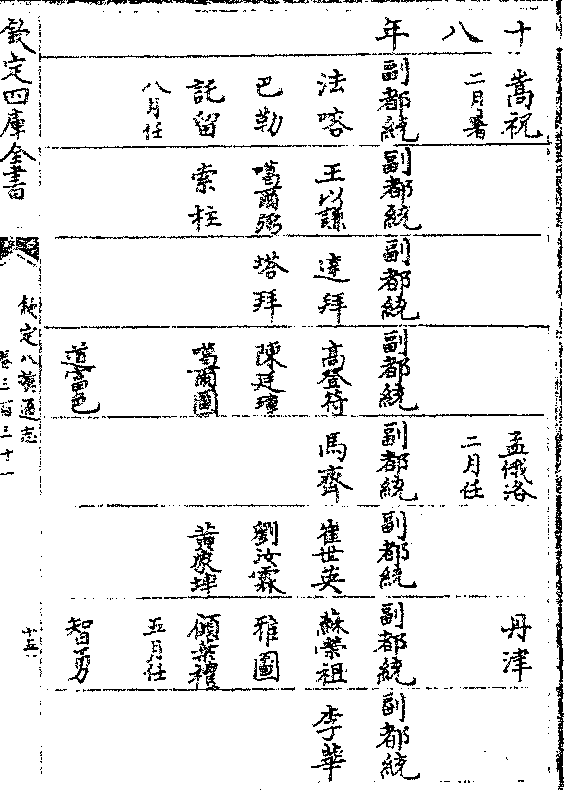 十八年
嵩祝
二月署
副都統
法喀
巴勒
託留
八月任
副都統
王以謙
噶爾弼
索柱
副都統
達拜
塔拜
副都統
高登符
噶爾圖
孟俄洛
二月任
副都統
馬齊
副都統
崔世英
劉汝霖
丹津
副都統
蘇榮祖
雅圖
五月任
智勇
副都統
李華
欽定四庫全書
欽定八旗通志
卷三百三十一
十五